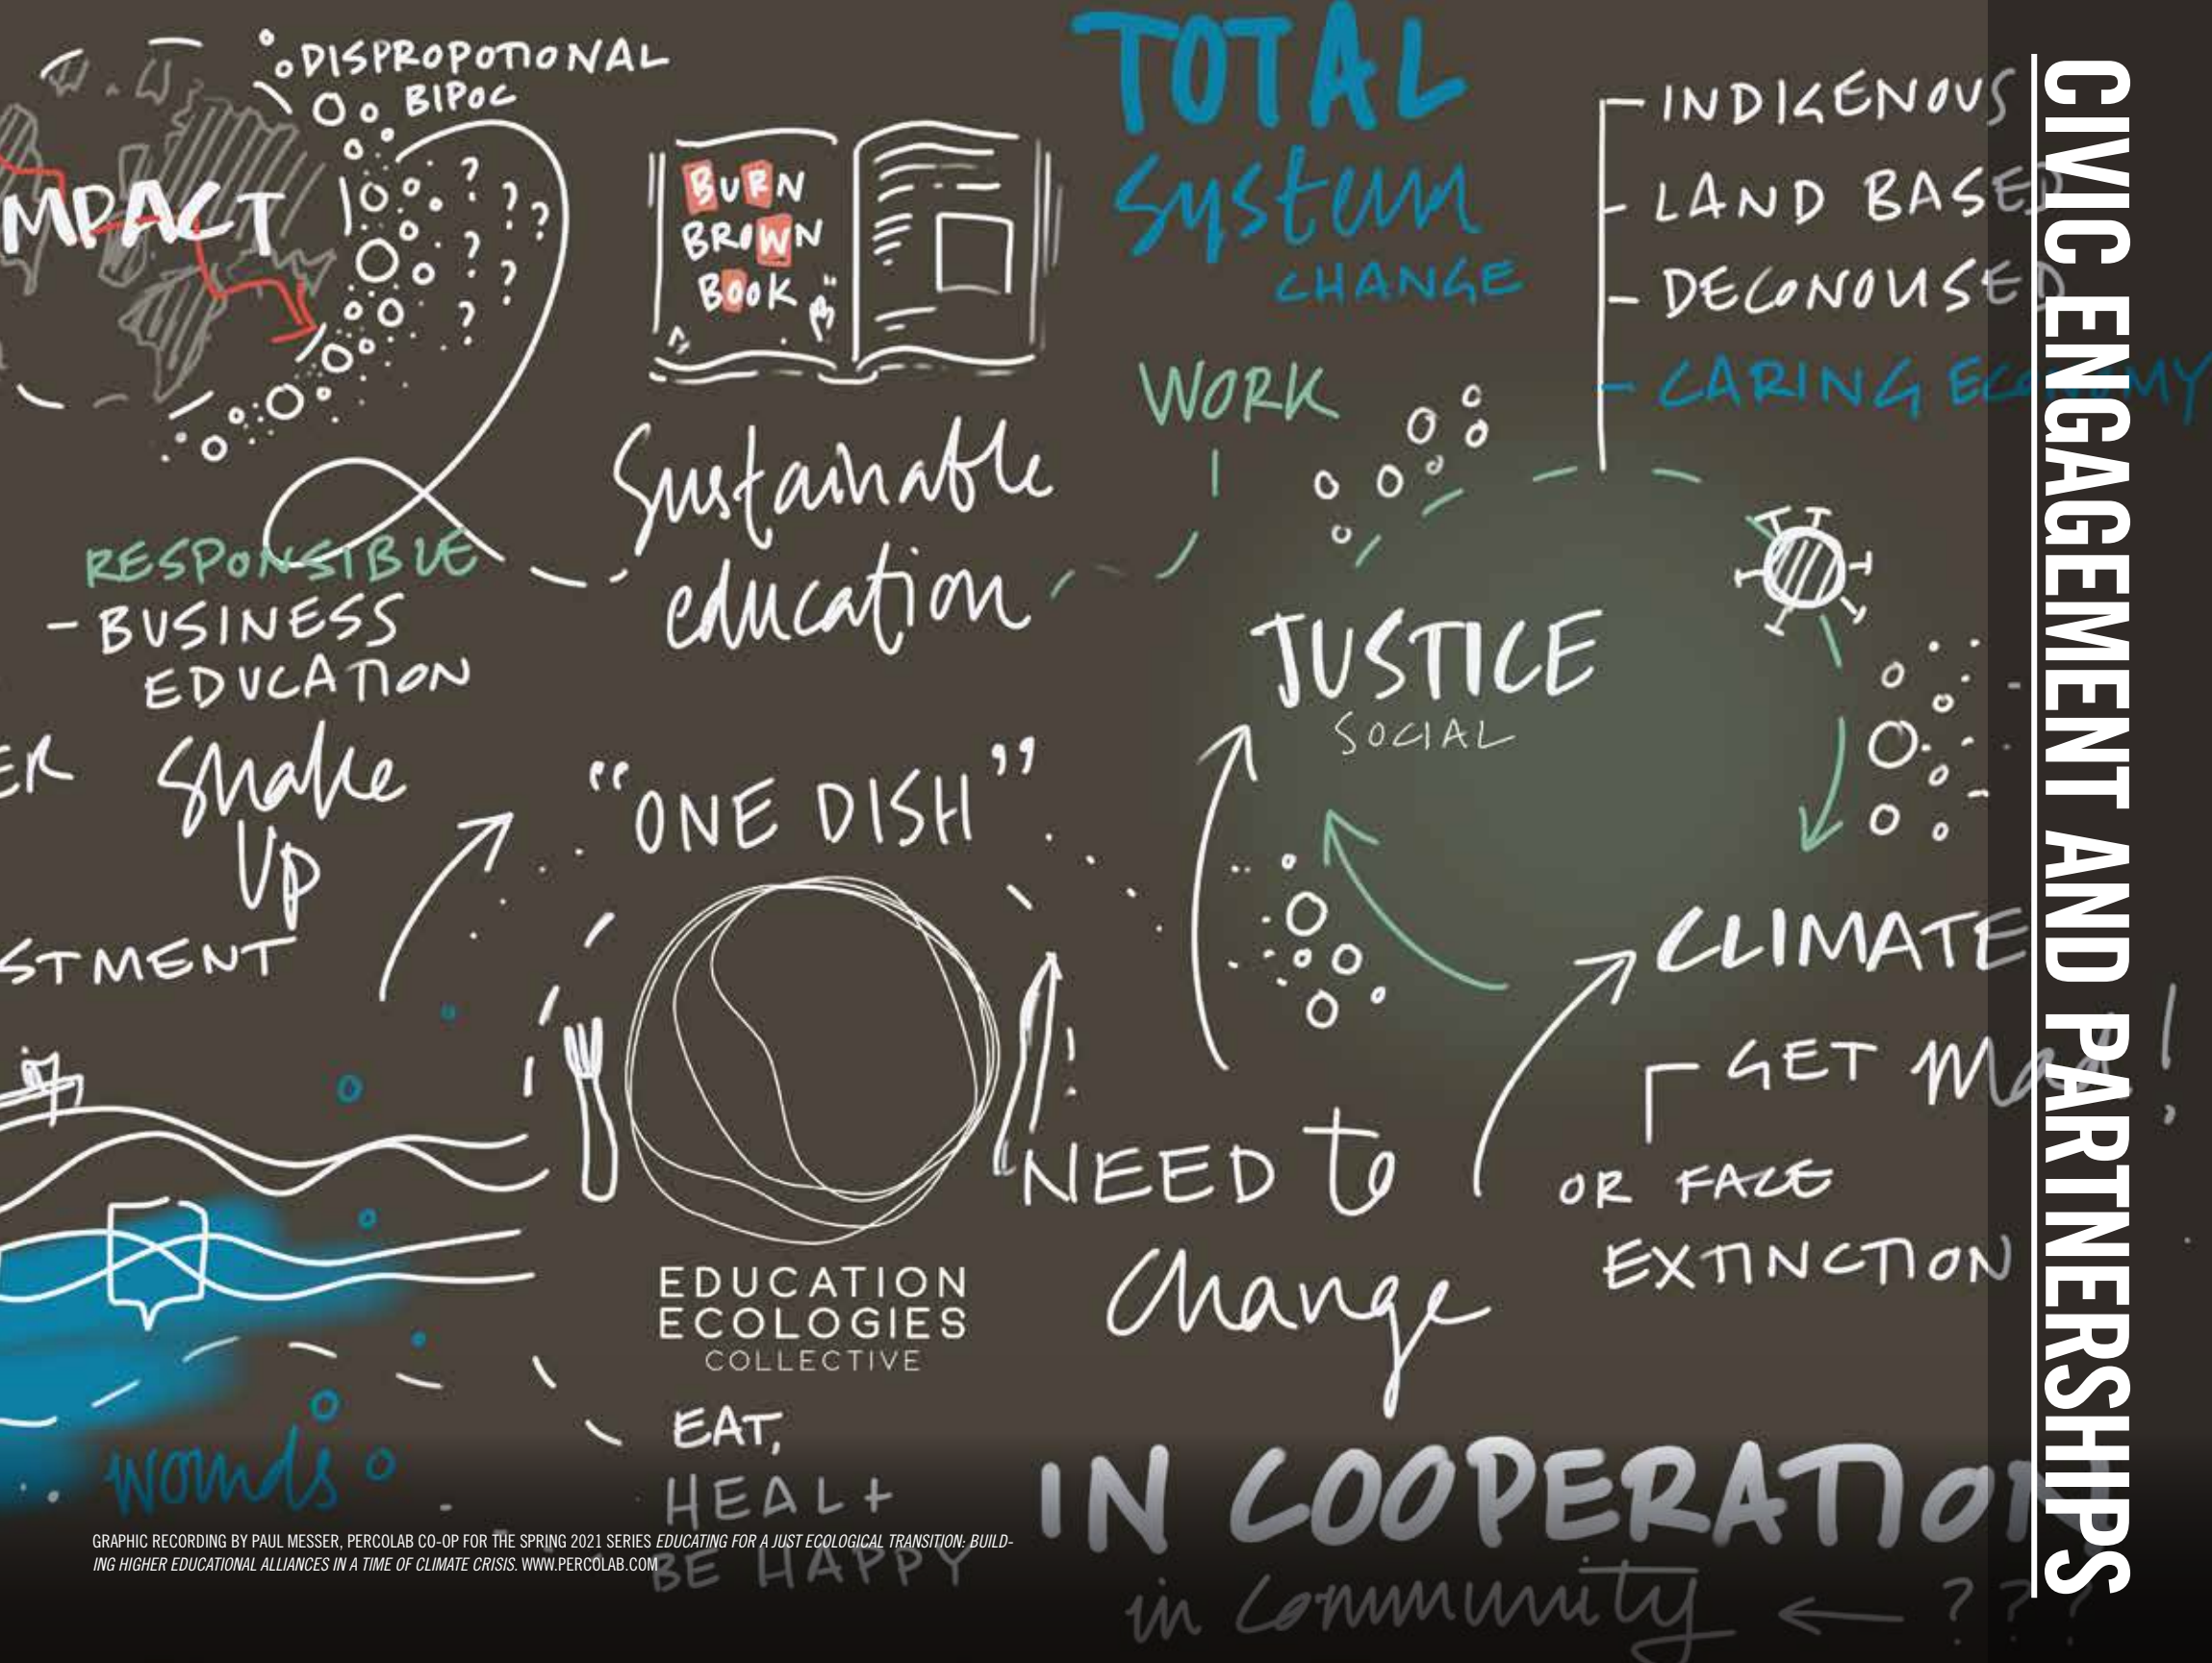 DISPROPOTIONAL
BIPOC
MPACT
BURN
BROWN
BOOK
TOTAL
System
CHANGE
INDIGENOUS
LAND BASED
DECONOUSED
CARING ECONOMY
WORK
Sustainable
education
RESPONSIBLE
- BUSINESS
EDUCATION
ER
Shake
UP
STMENT
"ONE DISH"
JUSTICE
SOCIAL
CLIMATE
GET Mad!
OR FACE
EXTINCTION
NEED to
Change
EDUCATION
ECOLOGIES
COLLECTIVE
EAT,
HEAL +
BE HAPPY
wounds
IN COOPERATION
in Community ← ???
GRAPHIC RECORDING BY PAUL MESSER, PERCOLAB CO-OP FOR THE SPRING 2021 SERIES EDUCATING FOR A JUST ECOLOGICAL TRANSITION: BUILD-
ING HIGHER EDUCATIONAL ALLIANCES IN A TIME OF CLIMATE CRISIS. WWW.PERCOLAB.COM
CIVIC ENGAGEMENT AND PARTNERSHIPS